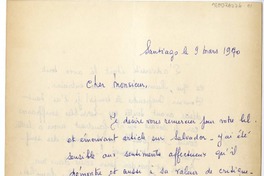 Santiago le 9 mars 1970
Cher Monsieur,
Je désire vous remercier pour votre bel
et émouvant article sur Salvador - j'ai été
sensible aux sentiments affectueux qu'il
démontre et aussi à sa valeur de critique -